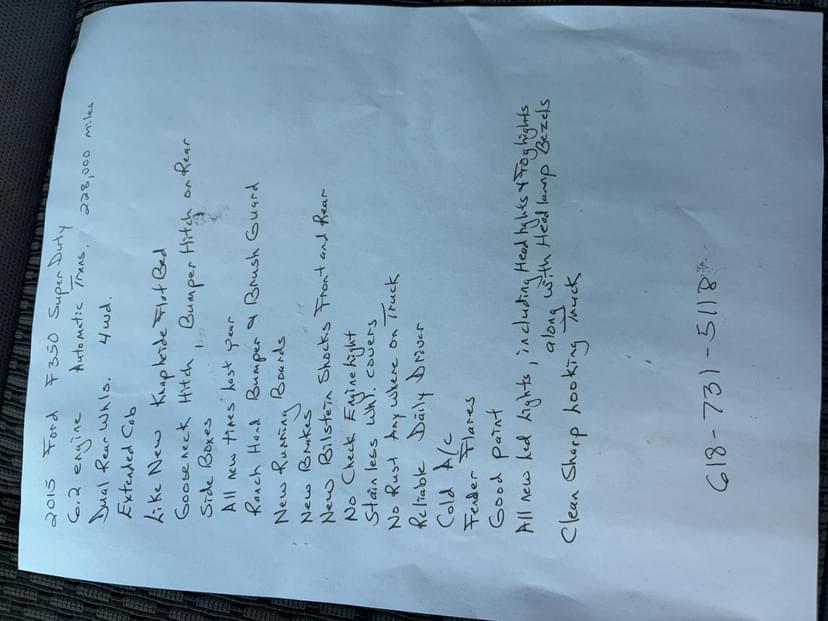 2015 Ford F350 Super Duty
6.2 engine Automatic Trans. 228,000 miles
Dual Rear Whls. 4wd.
Extended Cab
Like New Knapheide Flat Bed
Gooseneck Hitch, Bumper Hitch on Rear
Side Boxes
All new tires last year
Ranch Hand Bumper & Brush Guard
New Running Boards
New Brakes
New Bilstein Shocks Front and Rear
No Check Engine light
Stainless Whl. covers
No Rust Anywhere on Truck
Reliable Daily Driver
Cold A/C
Fender Flares
Good paint
All new led lights, including Headlights & Foglights
along with Headlamp Bezels
Clean Sharp Looking Truck
618-731-5118